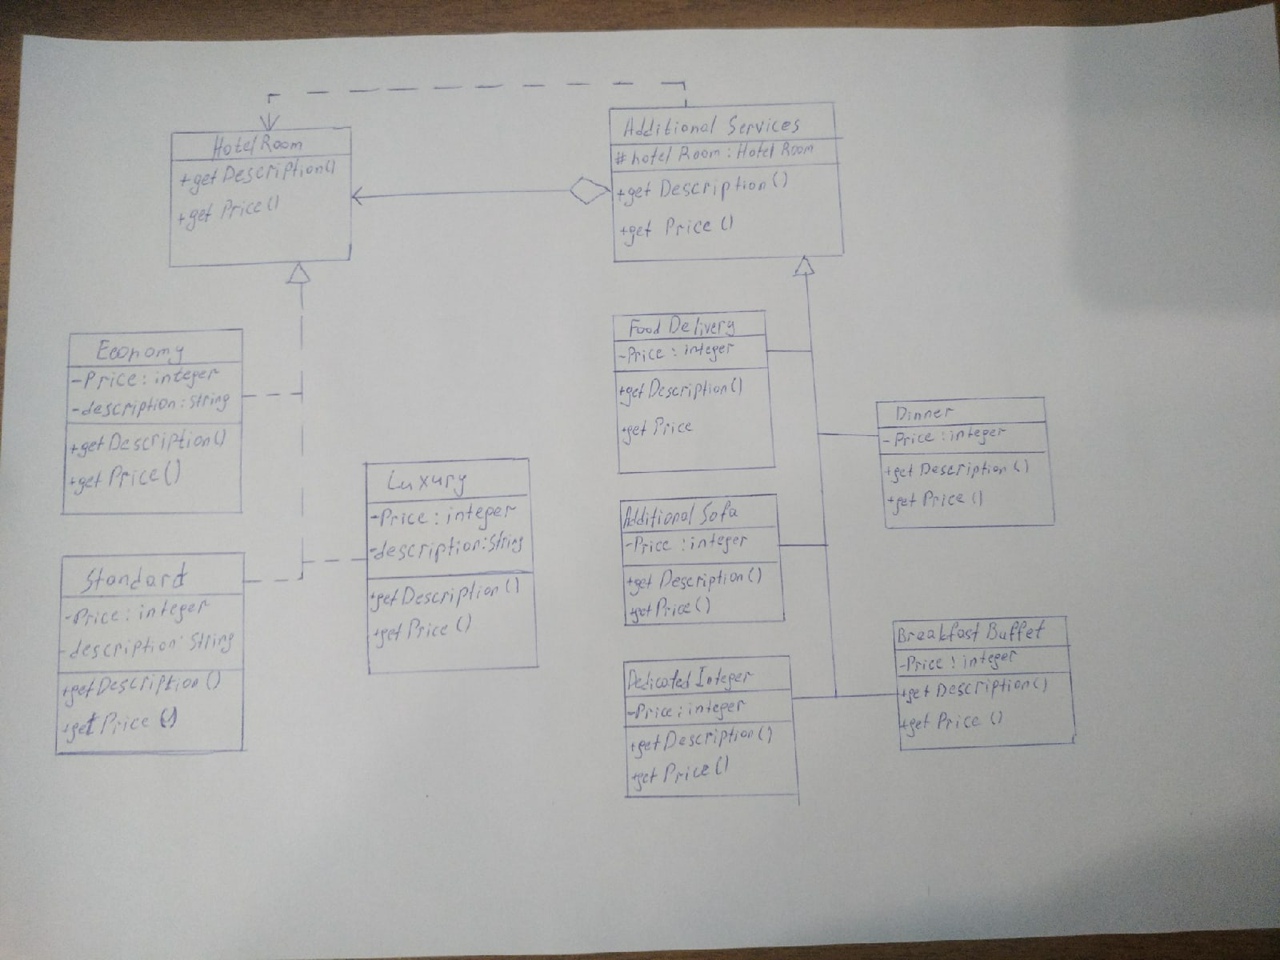 Hotel Room
+getDescription()
+get Price()
Additional Services
#hotel Room: Hotel Room
+get Description()
+get Price()
Economy
-Price: integer
-description: String
+getDescription()
+get Price()
Standard
-Price: integer
-description: String
+getDescription()
+get Price()
Luxury
-Price: integer
-description: String
+getDescription()
+getPrice()
Food Delivery
-Price: integer
+getDescription()
+get Price
Additional Sofa
-Price: integer
+getDescription()
+getPrice()
Dedicated Integer
-Price: integer
+getDescription()
+get Price()
Dinner
-Price: integer
+getDescription()
+getPrice()
Breakfast Buffet
-Price: integer
+get Description()
+get Price()